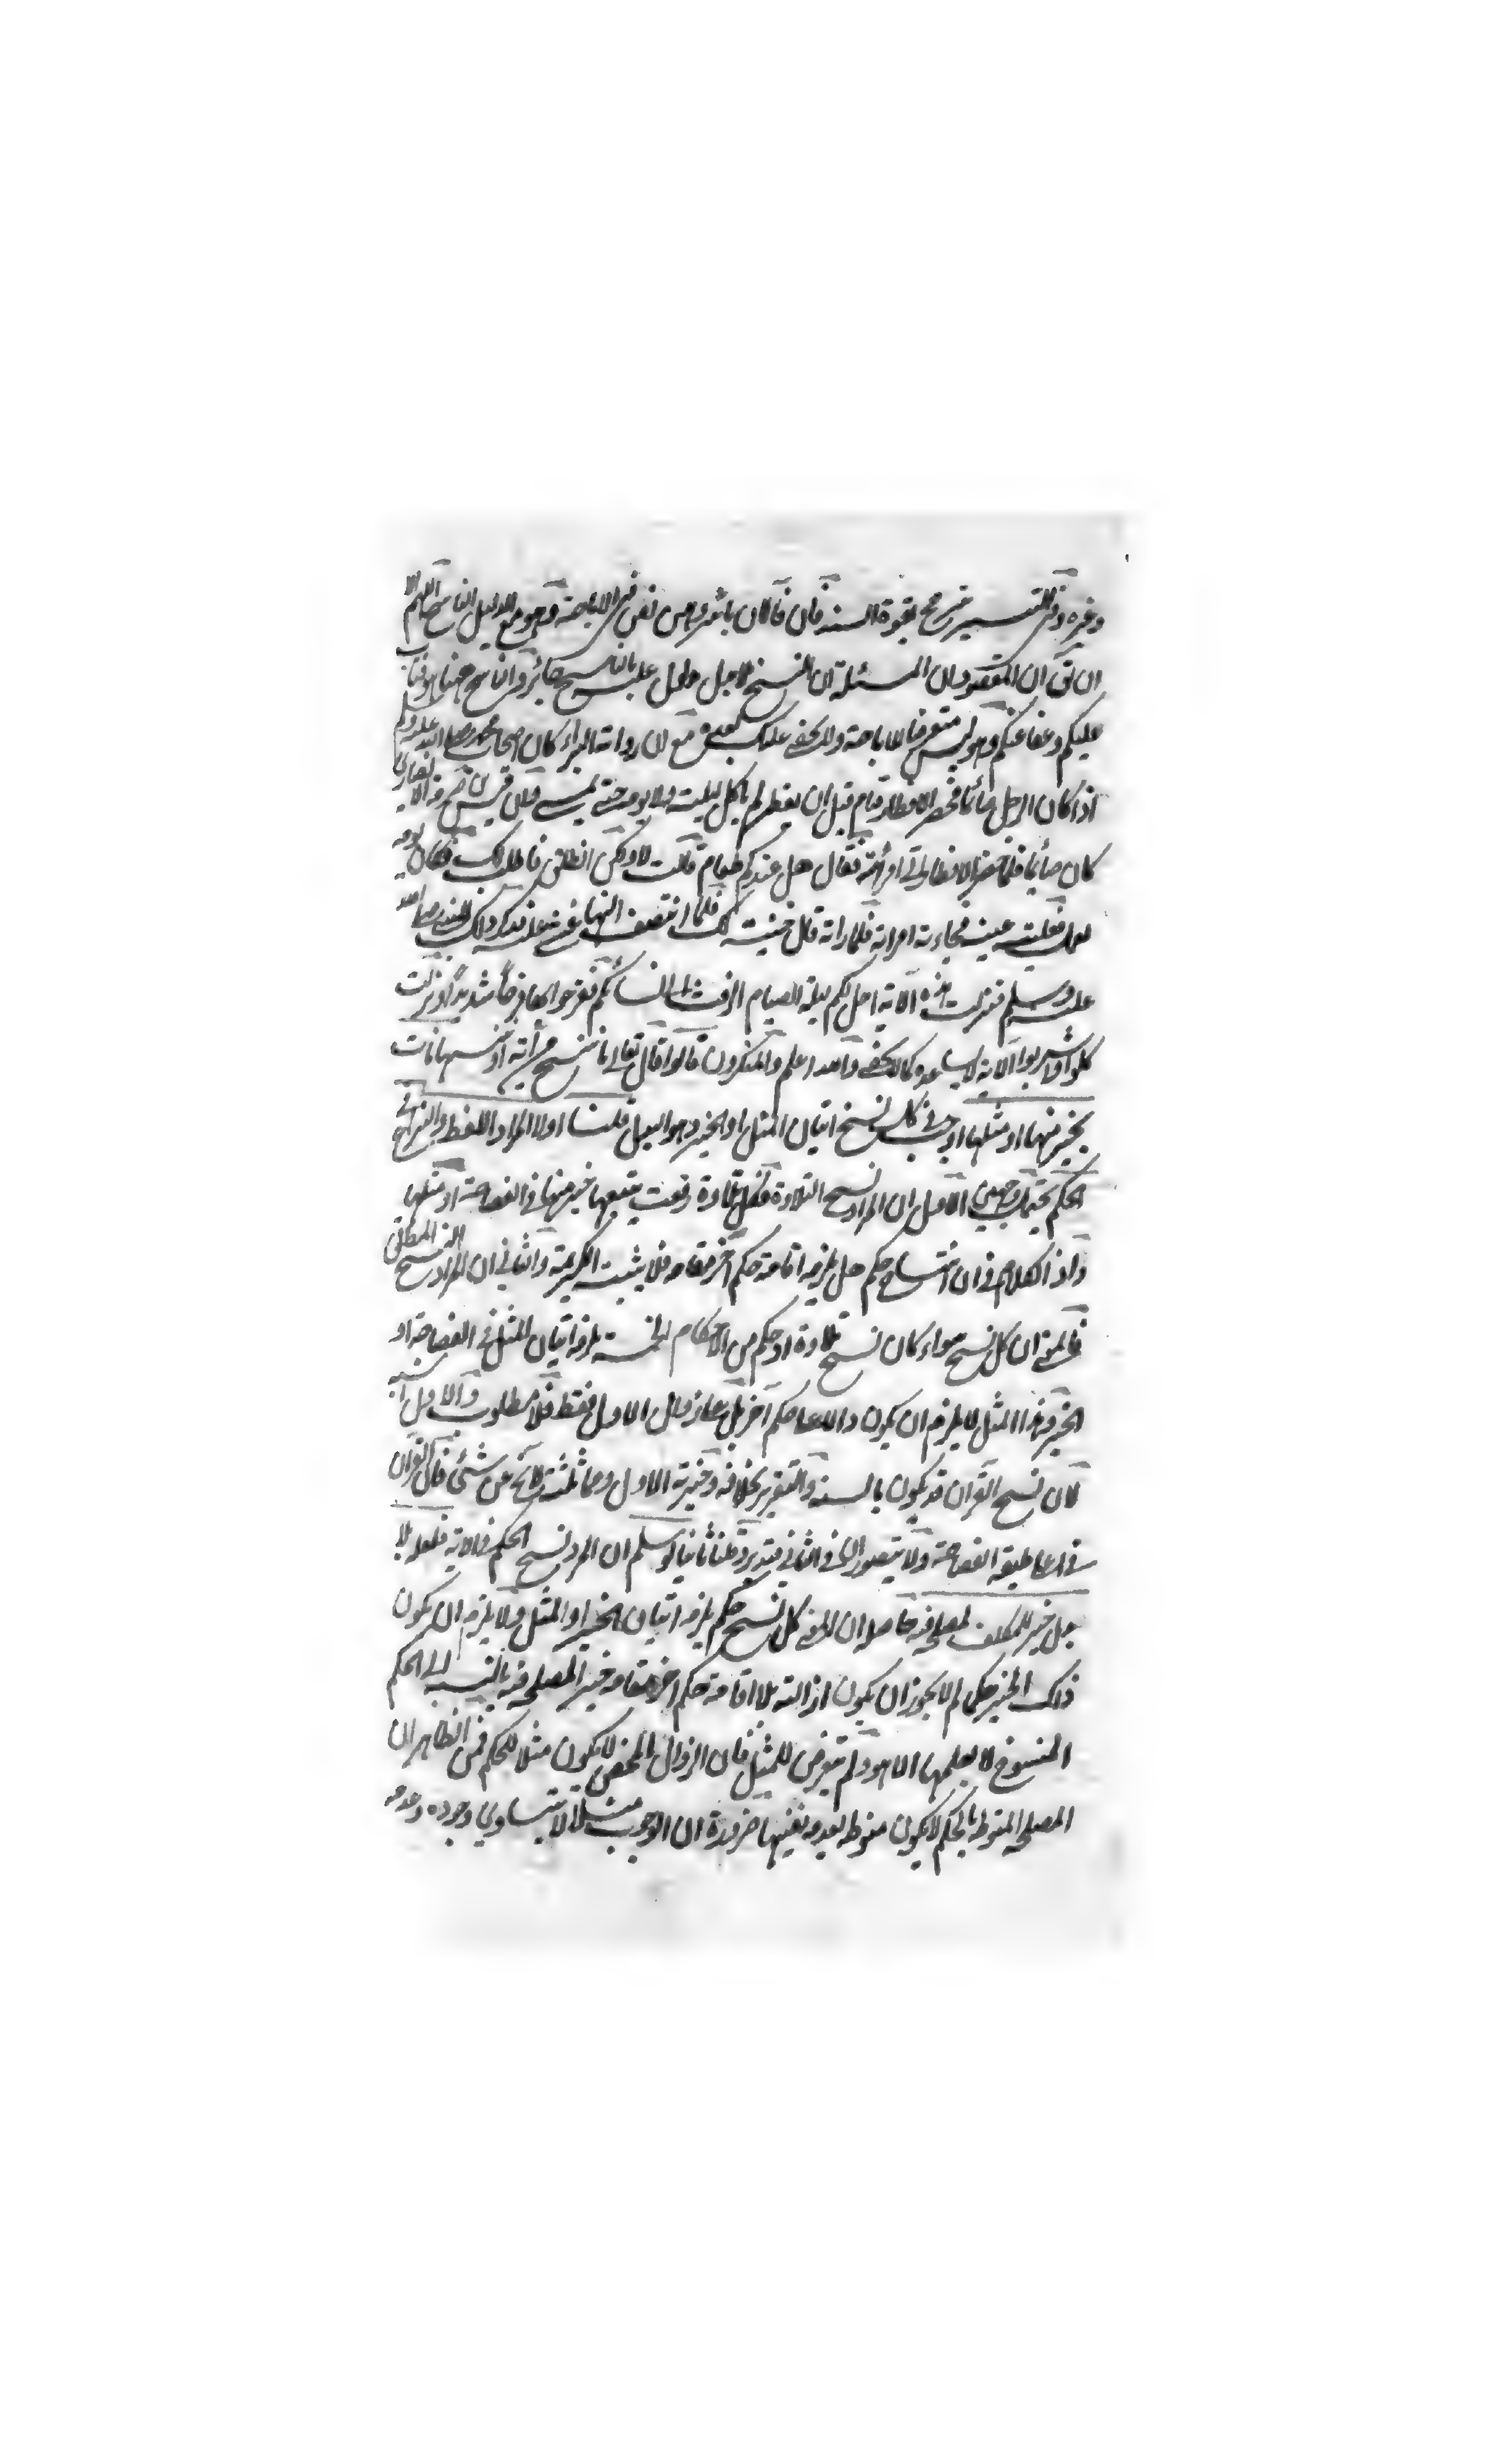 وغيره وفي التيسير مصرح بقوة السند فان فالآن باشروهن نص في الاباحة وهو مع الدليل الناسخ اللهم الا
ان يق ان المقصود ان المسئلة ان النسخ لا بدل بالناسخ جائز والناسخ ههنا هو فتاب
عليكم وعفا عنكم وهو ليس متعرضا للاباحة ولا يخفى عليك بعده مع ان رواية البراء كان اصحاب محمد صلى الله عليه وسلم
اذا كان الرجل صائما فحضر الافطار فنام قبل ان يفطر لم ياكل ليلته ولا يومه حتى يمسي وان قيس بن صرمة الانصاري
كان صائما فلما حضر الافطار اتى امرأته فقال هل عندكم طعام قالت لا ولكن انطلق فاطلب لك وكان يومه
يعمل فغلبته عينه فجاءته امرأته فلما رأته قالت خيبة لك فلما انتصف النهار غشي عليه فذكر ذلك للنبي صلى الله
عليه وسلم فنزلت هذه الآية احل لكم ليلة الصيام الرفث الى نسائكم ففرحوا بها فرحا شديدا ونزلت
كلوا واشربوا الآية لا يساعده كما لا يخفى والله اعلم والمنكرون قالوا قال تعالى ما ننسخ من آية او ننسها نات
بخير منها او مثلها اوجب في كل نسخ اتيان المثل او الخير وهو البدل قلنا اولا المراد اللفظ والنزاع في
الحكم يحتمل وجهين الاول ان المراد نسخ التلاوة فكل تلاوة رفعت يتبعها خير منها في الفصاحة او مثلها
واذ الكلام في ان انتساخ حكم هل يلزمه اقامة حكم آخر مقامه فلا يثبت الكريمة والثاني ان المراد نسخ الآية المطلق
فالمعنى ان كل نسخ سواء كان نسخ تلاوة او حكم من الاحكام الخمسة يلزمه اتيان المثل في الفصاحة او
الخير وهذا المثل لا يلزم ان يكون دالا على حكم آخر بل جاز زوال الاول فقط فلا مطلوب والاول اشبه
لان نسخ القرآن قد يكون بالسنة والتقرير بخلافه وخيرية الاول ومماثلته لآي عن شئ فان القرآن
في اعلى طبقة الفصاحة ولا يتصور في الثاني فتدبر وقلنا ثانيا لو سلم ان المراد نسخ الحكم في الآية فلعله بلا
بدل خير للمكلف لمصلحة حاصله ان المعنى كل نسخ حكم يلزمه اتيان الخير او المثل ولا يلزمه ان يكون
ذلك الخير حكما لم لا يجوز ان يكون ازالته بلا اقامة حكم آخر مقامه خير المصلحة فيه بالنسبة الى الحكم
المنسوخ لا يعلمها الا هو ولم يتعرض للمثل فان الزوال المحض لا يكون مثلا للحكم فمن الظاهر ان
المصلحة المنوطة بالحكم لا يكون منوطة بعدمه بعينها ضرورة ان الوجوب مثلا لا يتساوي وجوده وعدمه